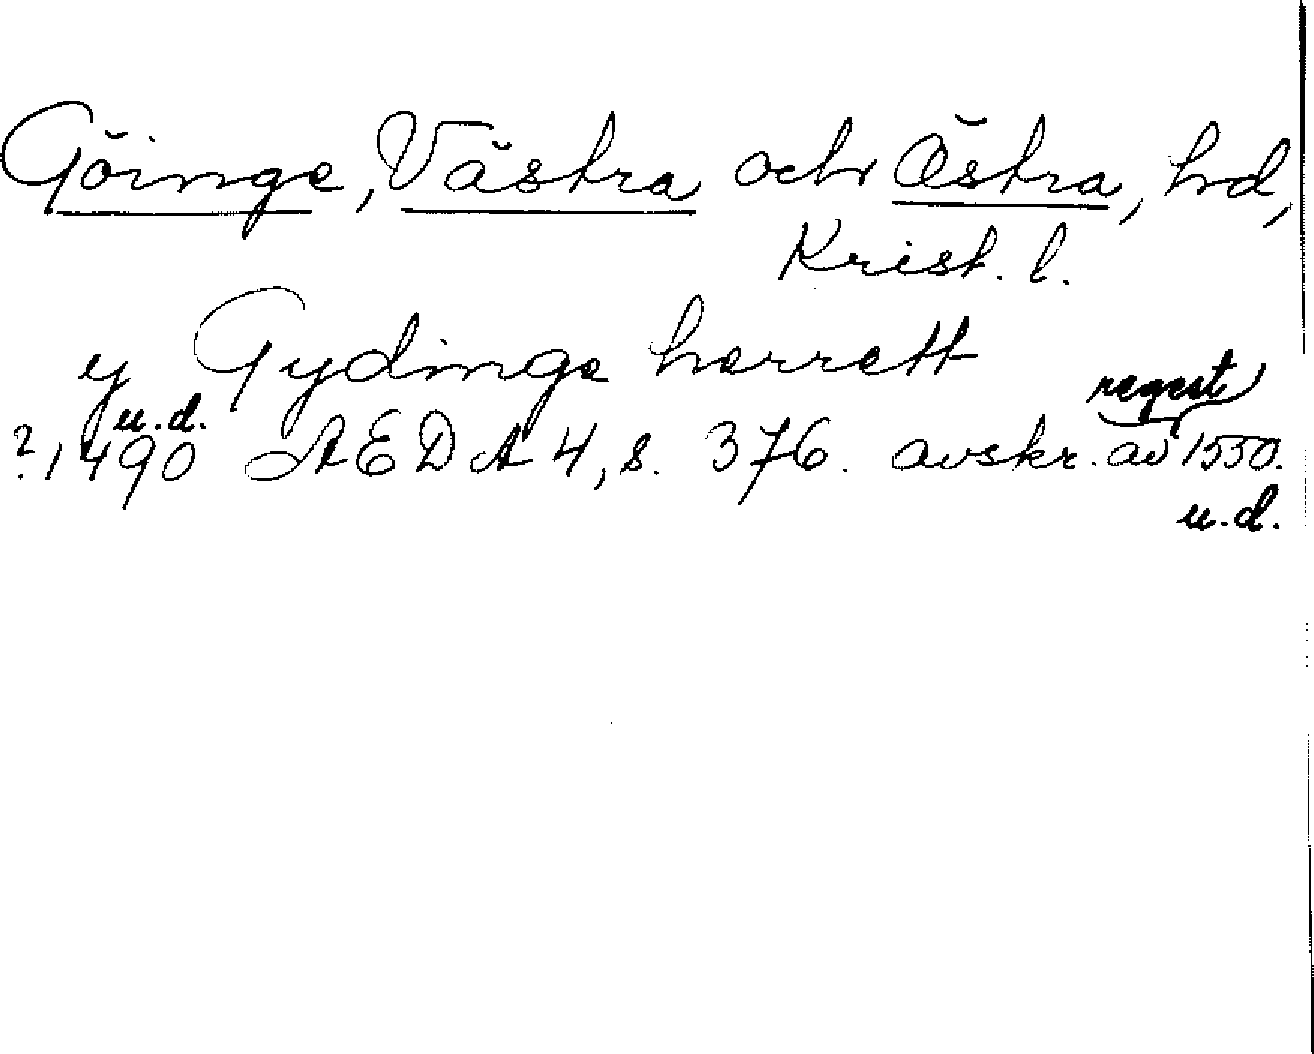 Göinge, Västra och Östra, hd,
Krist. l.
y Gydinge herrett
u.d. regest
?, 1490 AEDA 4, s. 376. avskr. av 1550.
u.d.